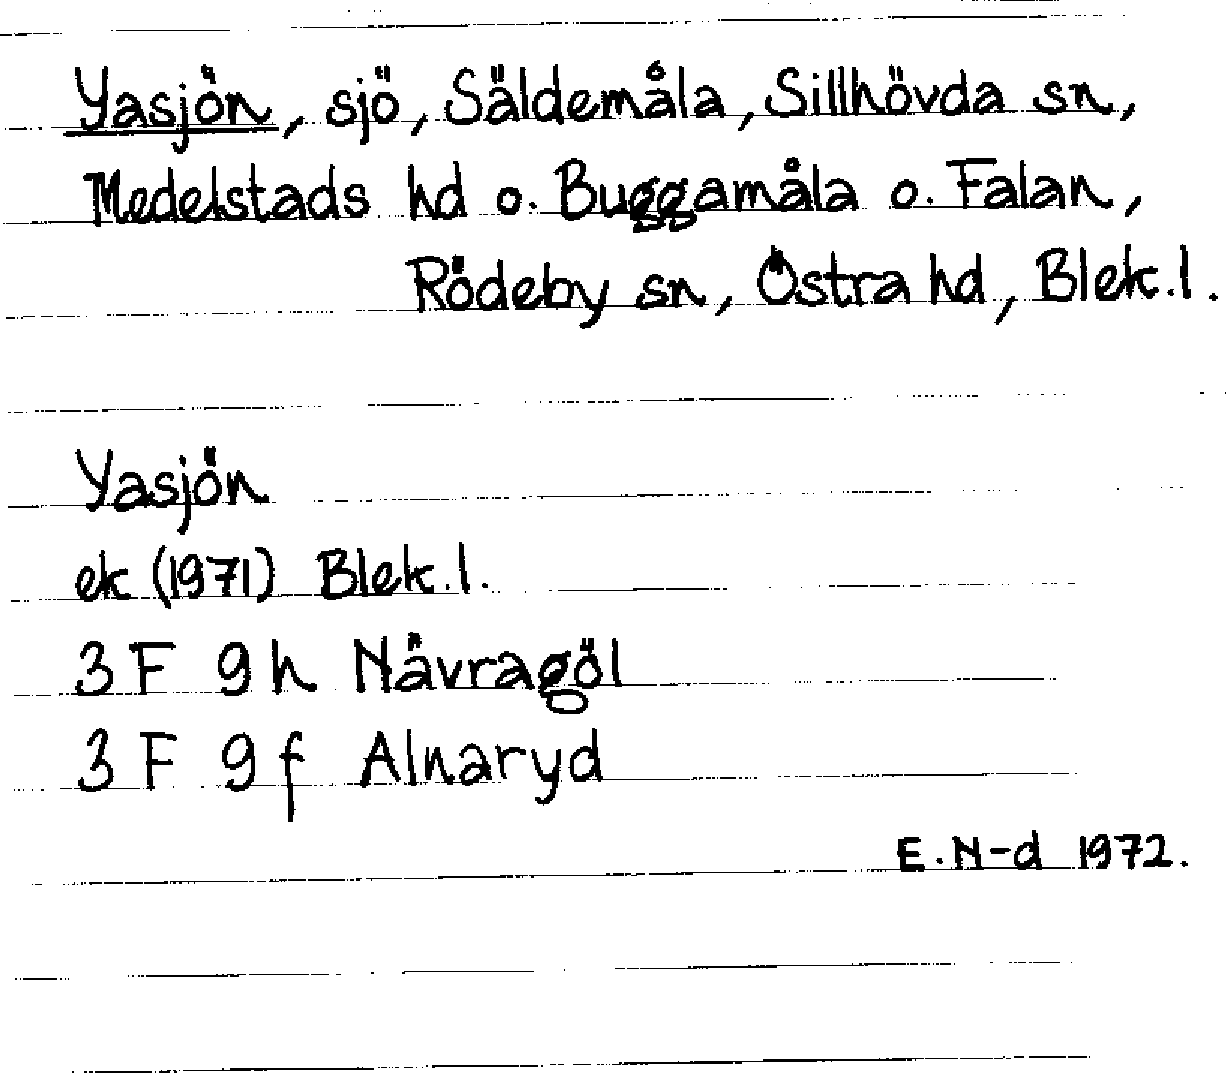 Yasjön, sjö, Säldemåla, Sillhövda sn,
Medelstads hd o. Buggamåla o. Falan,
Rödeby sn, Östra hd, Blek.l.
Yasjön
ek (1971) Blek.l.
3 F 9 h Nävragöl
3 F 9 f Alnaryd
E.N-d 1972.